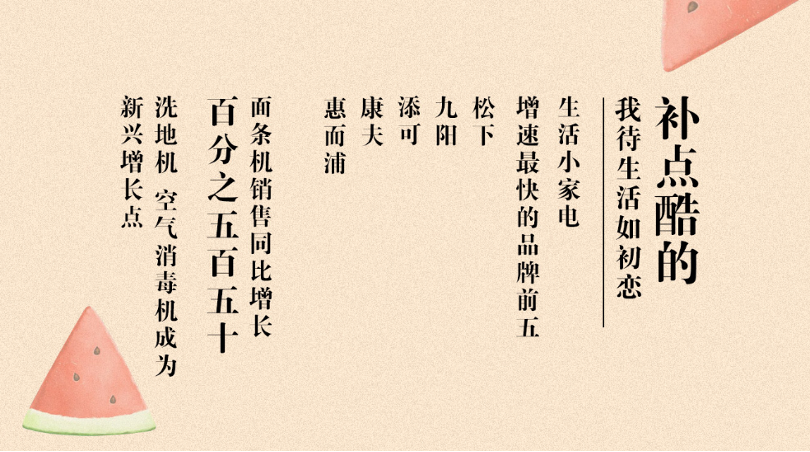 补点酷的
我待生活如初恋
生活小家电
增速最快的品牌前五
松下
九阳
添可
康夫
惠而浦
面条机销售同比增长
百分之五百五十
洗地机 空气消毒机成为
新兴增长点